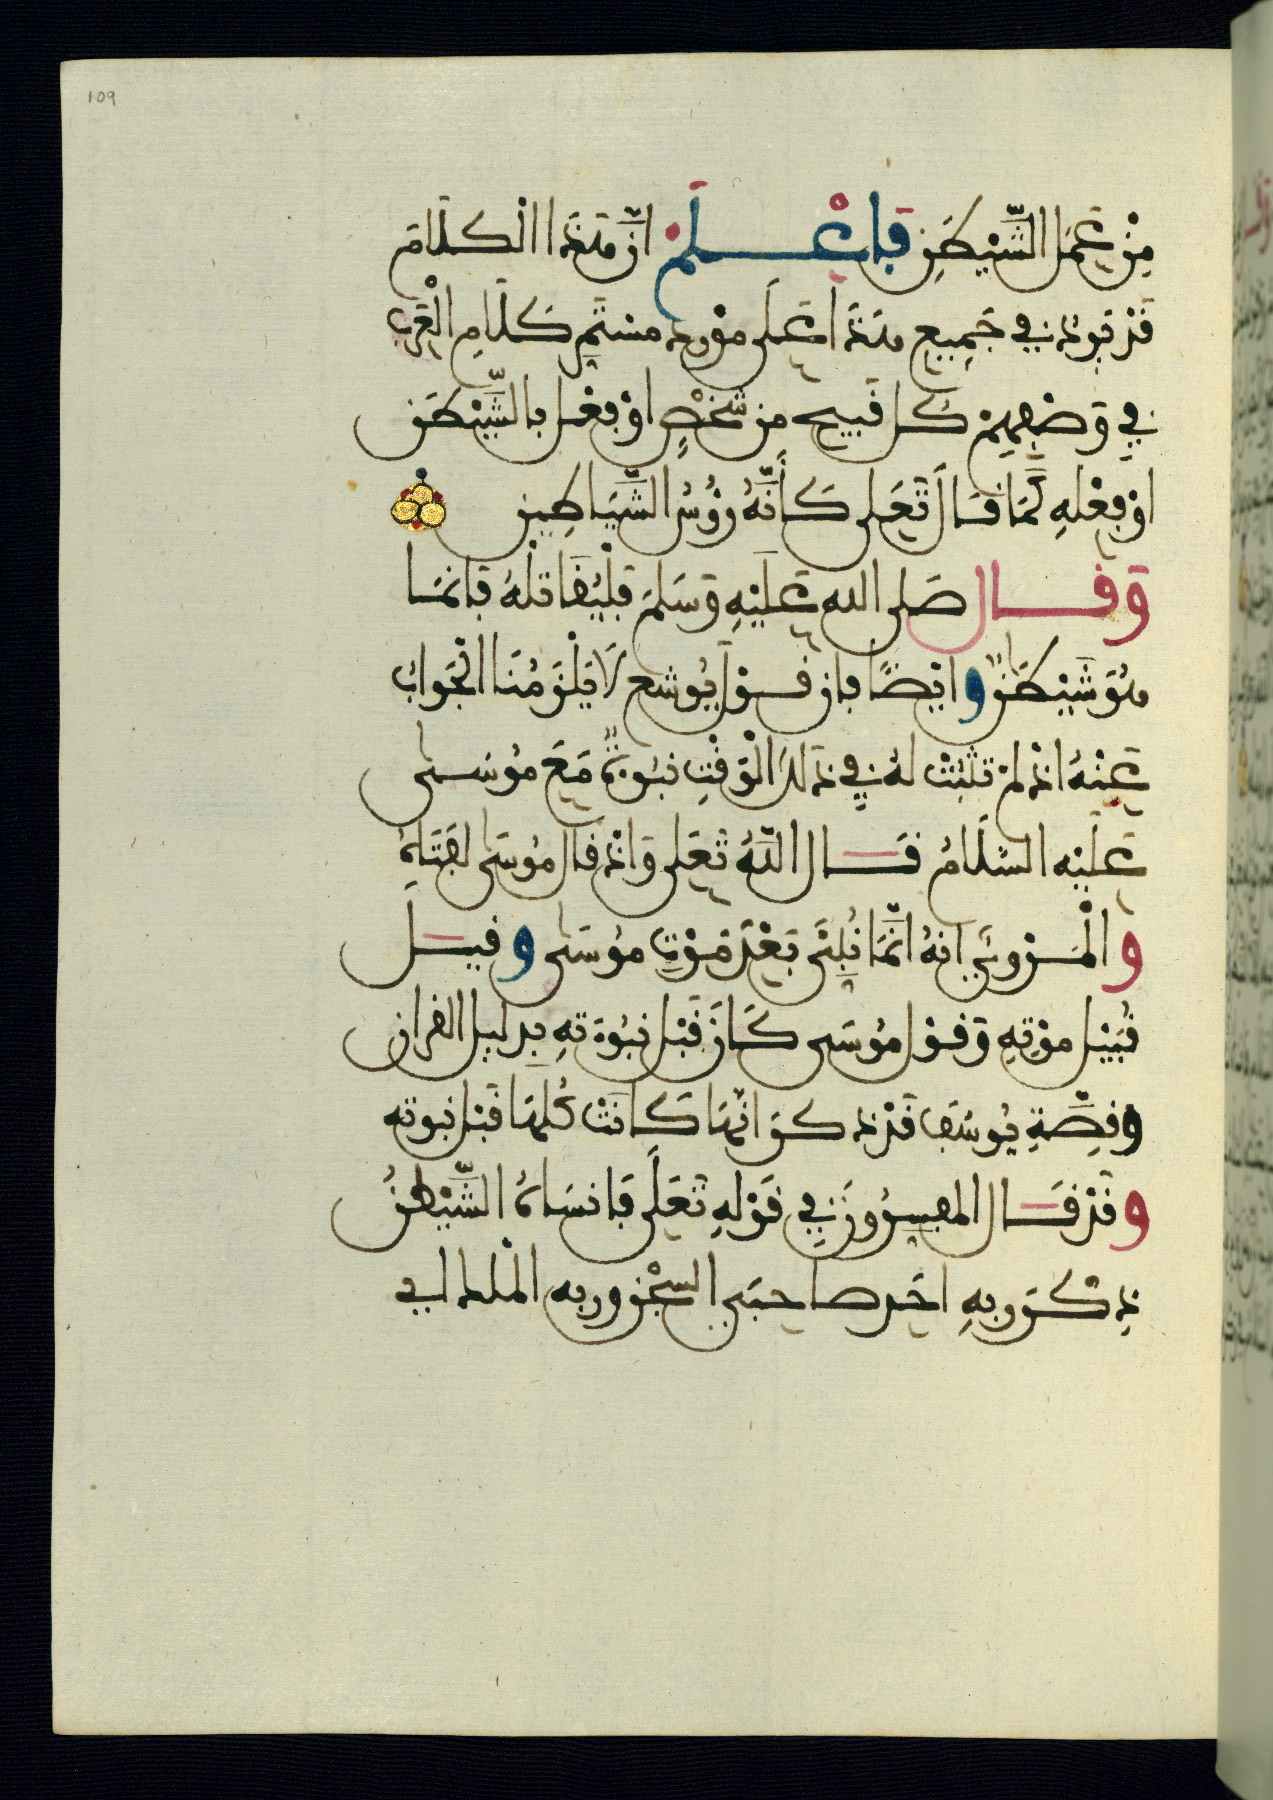 109
مِنْ عَمَلِ الشَّيْطَٰنِ فَاعْلَمْ انَّ هَٰذَا الْكَلَامَ
قَدْ يَرِدُ فِي جَمِيعِ هَٰذَا عَلَى مَوْرِدِ مستَمِرِّ كَلَامِ الْعَرَبِ
فِي وَصْفِهِمْ كُل قَبِيحٍ من شَخْصٍ اوْ فِعْل بالشَّيْطَٰنِ
اوْ فِعْلهِ كَمَا قَالَ تَعَلَى كَأَنَّهُ رُؤُسُ الشَّيَاطِينِ
وَقَال صَلى الله عَلَيْهِ وَسَلمَ فَلْيُقَاتلْهُ فَانمَا
هُوَ شَيْطَٰنٌ وايْضًا فان قَوْلَ يُوشع لَا يَلْزَمُنَا الْجَوابُ
عَنْهُ اذْ لمْ تَثْبُتْ لهُ فِي ذَلكَ الْوَقْتِ نبُوءَةٌ مَعَ مُوسَى
عَلَيْه السَّلَامُ قَال اللَّهُ تَعَلى وَاذْ قَال مُوسَى لفَتَاهُ
والْمَرْوِيُّ انهُ انَّمَا نُبِّئَ بَعْدَ مَوْتِ مُوسَى وقيل
قُبَيْل موْتهِ وَقوْل مُوسَى كَانَ قَبْل نبُوءَتهِ بدليل القران
وقصَّةِ يُوسُفَ قَدْ ذكرَ انَّهَا كَانَتْ كُلهَا قَبْل نبوته
وقدْ قَال المفسِّرُونَ فِي قَوْلهِ تَعَلَى فَانسَاهُ الشَّيْطَٰنُ
ذكْرَ ربهِ احَدهمَا صاحبَيِ السجْن وربه الملك اي